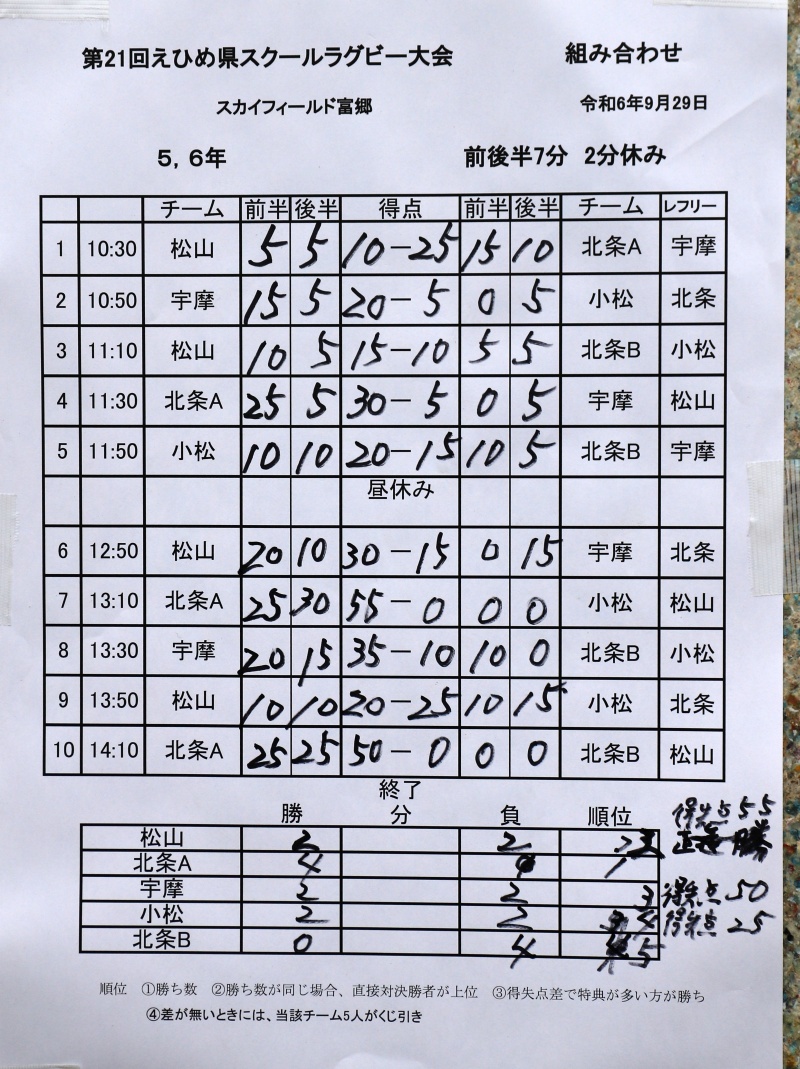 第21回えひめ県スクールラグビー大会 組み合わせ
スカイフィールド富郷 令和6年9月29日
5，6年 前後半7分 2分休み
チーム 前半 後半 得点 前半 後半 チーム レフリー
1 10:30 松山 5 5 10-25 15 10 北条A 宇摩
2 10:50 宇摩 15 5 20-5 0 5 小松 北条
3 11:10 松山 10 5 15-10 5 5 北条B 小松
4 11:30 北条A 25 5 30-5 0 5 宇摩 松山
5 11:50 小松 10 10 20-15 10 5 北条B 宇摩
昼休み
6 12:50 松山 20 10 30-15 0 15 宇摩 北条
7 13:10 北条A 25 30 55-0 0 0 小松 松山
8 13:30 宇摩 20 15 35-10 10 0 北条B 小松
9 13:50 松山 10 10 20-25 10 15 小松 北条
10 14:10 北条A 25 25 50-0 0 0 北条B 松山
終了
勝 分 負 順位 得失点55
松山 2 2 2
北条A 4 1
宇摩 2 2 3 得失点50
小松 2 2 4 得失点25
北条B 0 4 5
順位 ①勝ち数 ②勝ち数が同じ場合、直接対決勝者が上位 ③得失点差で特典が多い方が勝ち
④差が無いときには、当該チーム5人がくじ引き